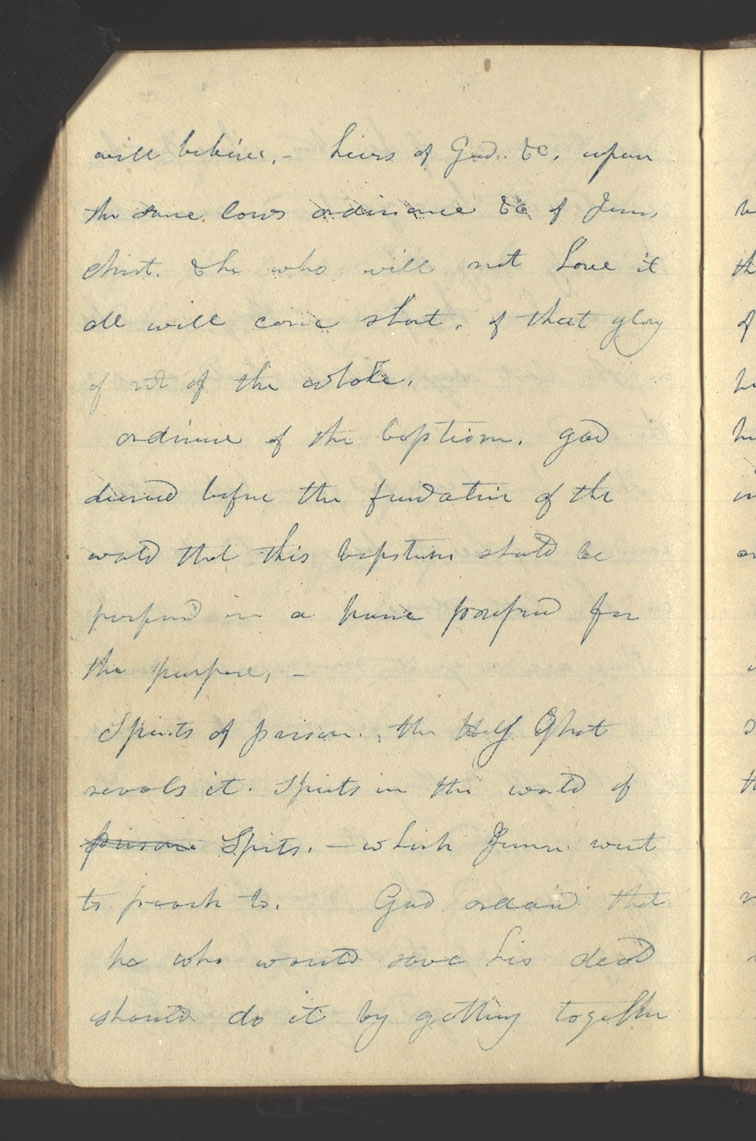 will believe,– heirs of God. &c. upon
the same laws ordinance &c of Jesus
christ. & he who will not have it
all will come short. of that glory
if not of the whole.
ordinance of the baptism. god
decreed before the foundation of the
world that this baptism should be
performd in a house prepared for
the purpose,–
Spirits of prison.. the Holy Ghost
reveals it. Spirits in the world of
prison Spirits. – which Jesus. went
to preach to. God ordaind that
he who would save his dead
should do it by getting together